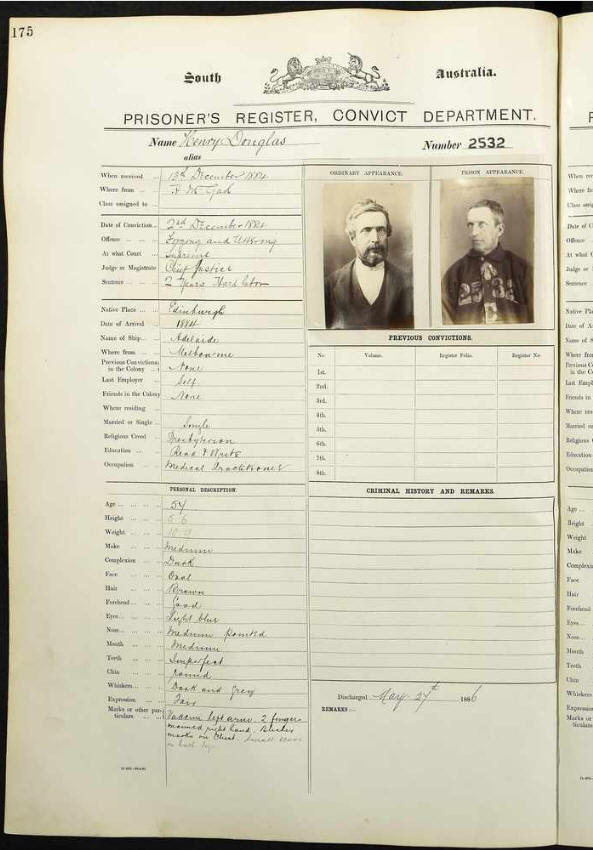 175
South Australia.
PRISONER'S REGISTER, CONVICT DEPARTMENT.
Name Henry Douglas
Number 2532
alias
When received 13th December 1884
Where from
Class assigned to
Date of Conviction 2nd December 1884
Offence Forging and Uttering
At what Court Supreme
Judge or Magistrate Chief Justice
Sentence 2 Years Hard labor
Native Place Edinburgh
Date of Arrival 1884
Name of Ship Adelaide
Where from Melbourne
Previous Convictions
in the Colony None
Last Employer Self
Friends in the Colony None
Where residing
Married or Single Single
Religious Creed Presbyterian
Education Read & Write
Occupation Medical Practitioner
PERSONAL DESCRIPTION.
Age 54
Height 5 6
Weight
Make Medium
Complexion Dark
Face Oval
Hair Brown
Forehead Good
Eyes Light blue
Nose Medium pointed
Mouth Medium
Teeth Imperfect
Chin round
Whiskers Dark and Grey
Expression
Marks or other par-
ticulars Vaccine left arm. 2 fingers
maimed right hand. Blister
marks on Chest. Small scars
on both legs
ORDINARY APPEARANCE.
PRISON APPEARANCE.
2532
PREVIOUS CONVICTIONS.
No. Volume. Register Folio. Register No.
1st.
2nd.
3rd.
4th.
5th.
6th.
7th.
8th.
CRIMINAL HISTORY AND REMARKS.
Discharged May 27th 1886
REMARKS